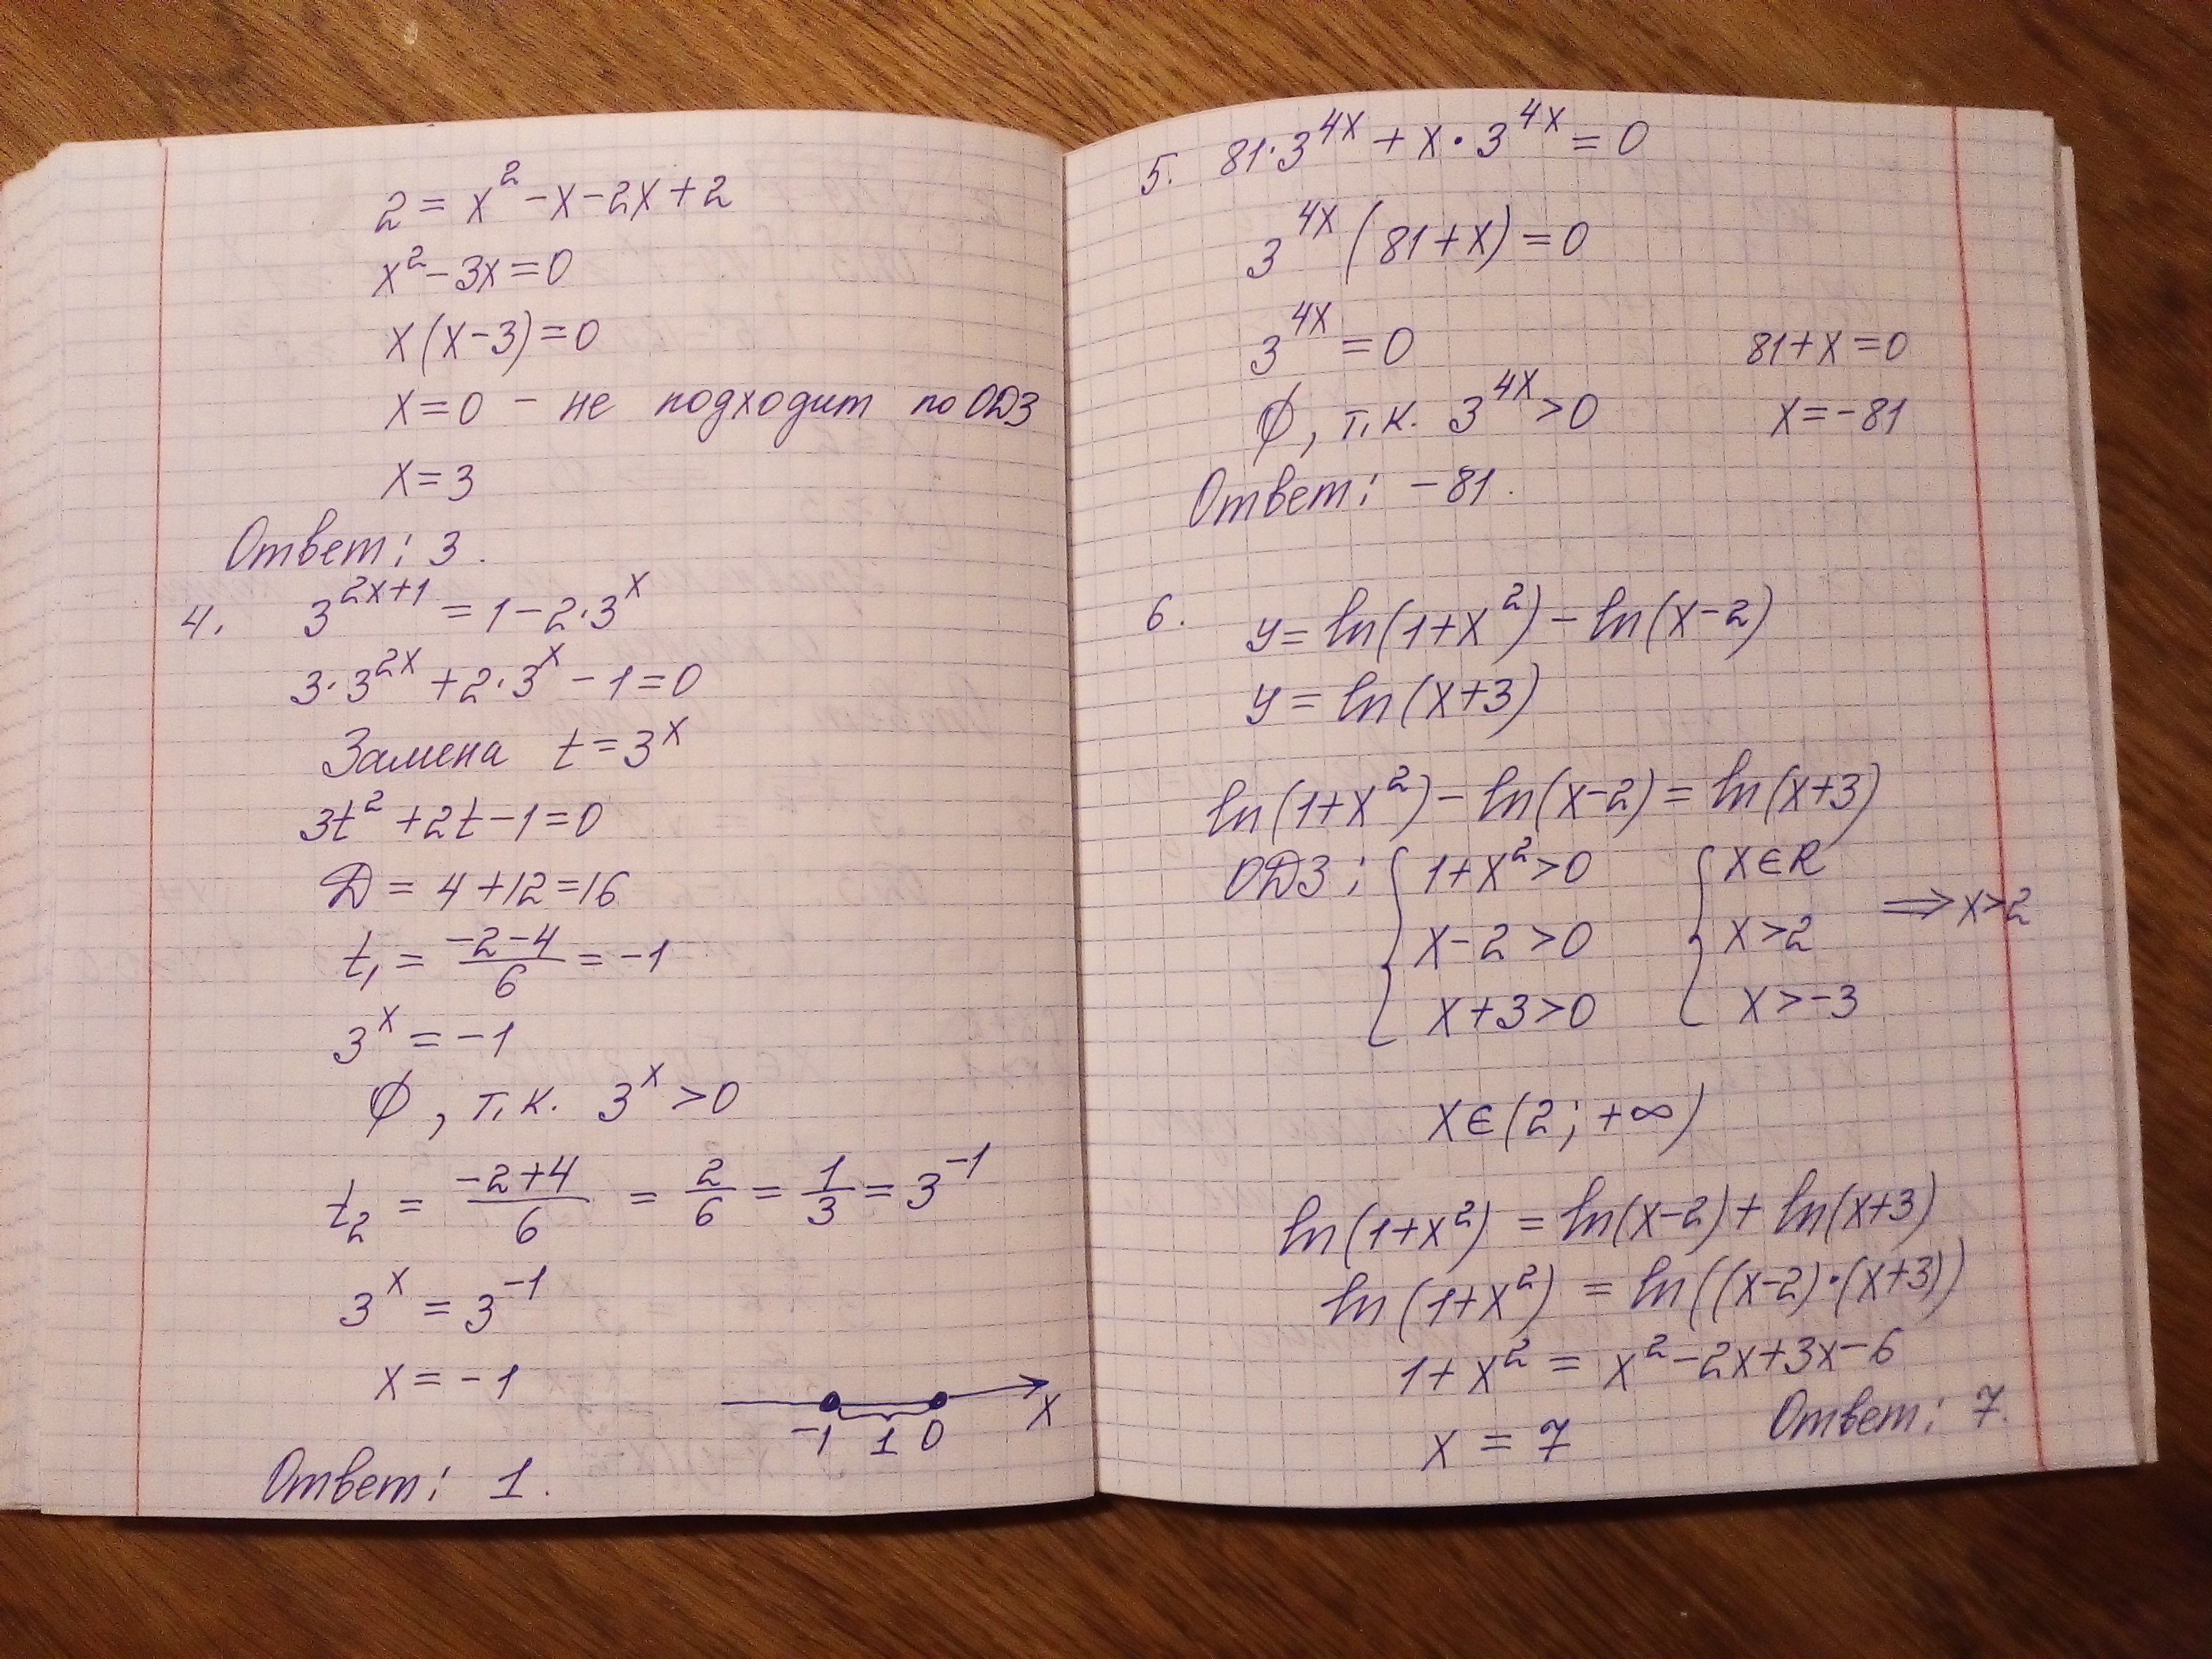 2 = x² - x - 2x + 2
x² - 3x = 0
x(x-3) = 0
x = 0 - не подходит по ОДЗ
x = 3
Ответ: 3.
4. 3^{2x+1} = 1 - 2·3^x
3·3^{2x} + 2·3^x - 1 = 0
Замена t = 3^x
3t² + 2t - 1 = 0
Д = 4 + 12 = 16
t₁ = \frac{-2-4}{6} = -1
3^x = -1
∅, т.к. 3^x > 0
t₂ = \frac{-2+4}{6} = \frac{2}{6} = \frac{1}{3} = 3^{-1}
3^x = 3^{-1}
x = -1
-1 1 0 x
Ответ: 1.
5. 81·3^{4x} + x·3^{4x} = 0
3^{4x}(81+x) = 0
3^{4x} = 0 81+x = 0
∅, т.к. 3^{4x} > 0 x = -81
Ответ: -81.
6. y = ln(1+x²) - ln(x-2)
y = ln(x+3)
ln(1+x²) - ln(x-2) = ln(x+3)
ОДЗ: { 1+x² > 0 { x∈R
x-2 > 0 x > 2 ⟹ x > 2
x+3 > 0 x > -3
x∈(2; +∞)
ln(1+x²) = ln(x-2) + ln(x+3)
ln(1+x²) = ln((x-2)·(x+3))
1+x² = x² - 2x + 3x - 6
x = 7 Ответ: 7.